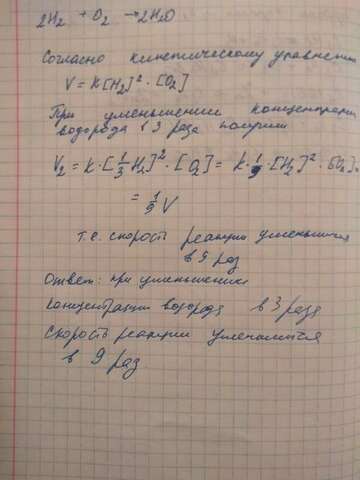 2H₂ + O₂ → 2H₂O
Согласно кинетическому уравнению
V = k[H₂]² · [O₂]
При уменьшении концентрации
водорода в 3 раза получим
V₂ = k · [⅓H₂]² · [O₂] = k · 1/9 · [H₂]² · [O₂] =
= 1/9 V
т.е. скорость реакции уменьшится
в 9 раз
Ответ: при уменьшении
концентрации водорода в 3 раза
скорость реакции уменьшится
в 9 раз